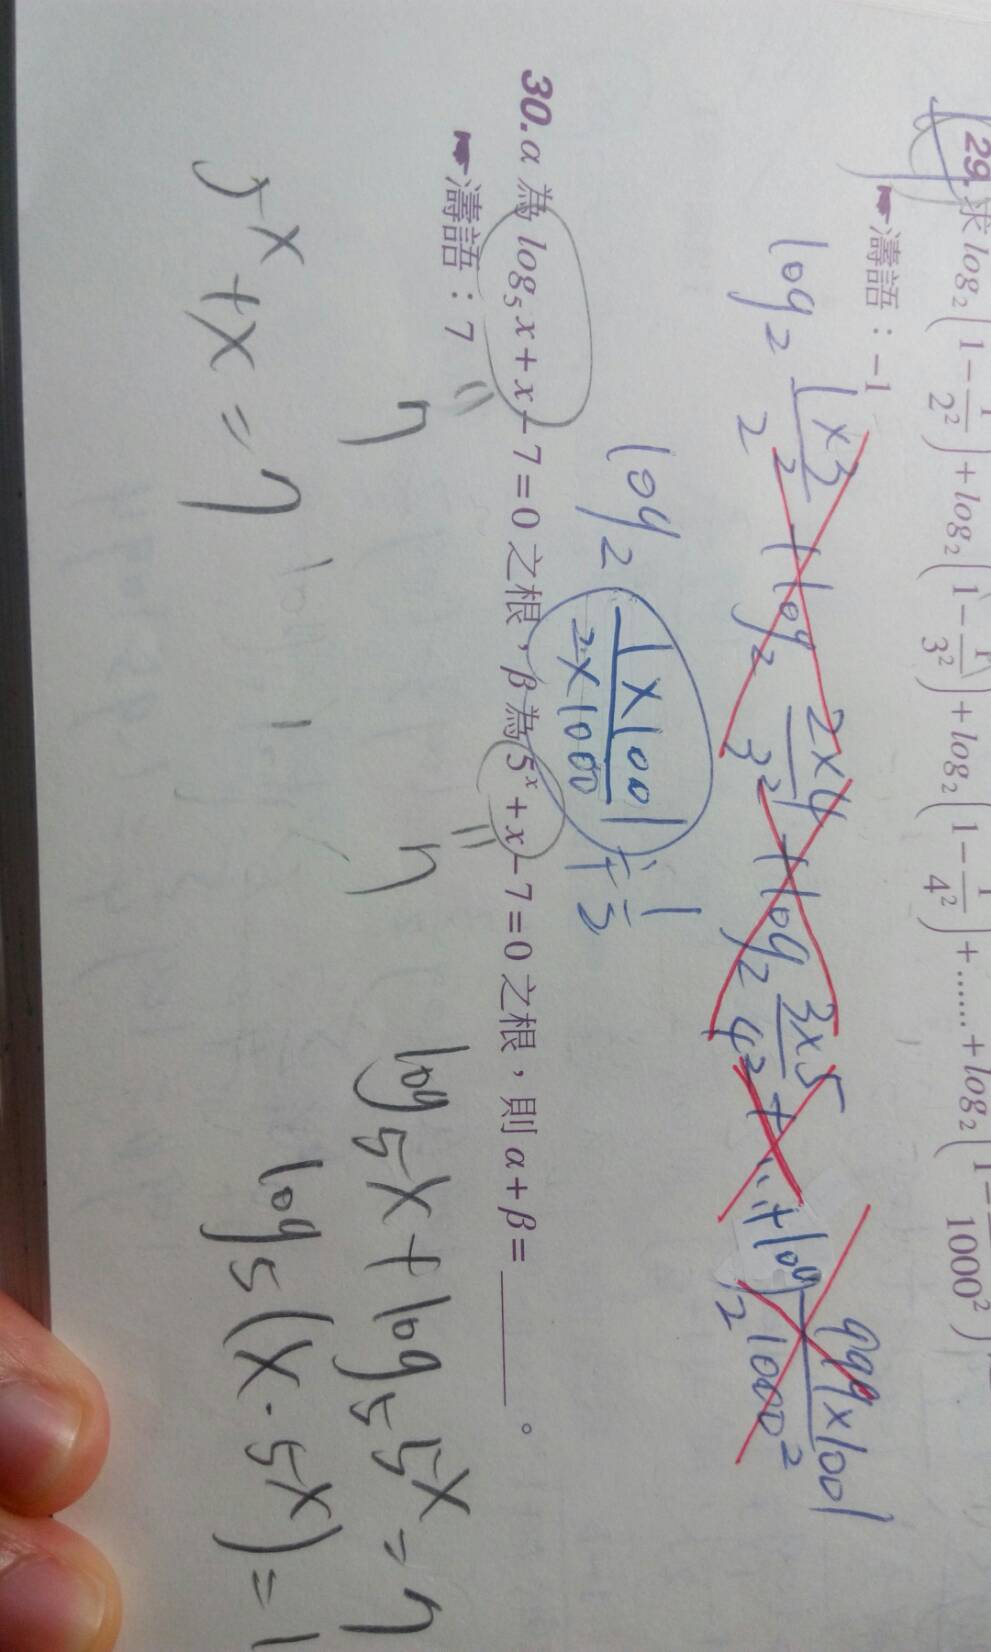 29. 求 log₂(1 − 1/2²) + log₂(1 − 1/3²) + log₂(1 − 1/4²) + …… + log₂(1 − 1/1000²)
☛濤語：−1
log₂ (1×3)/2² + log₂ (2×4)/3² + log₂ (3×5)/4² + … + log₂ (999×1001)/1000²
log₂ (1×1001)/(2×1000)
30. α 為 log₅x + x − 7 = 0 之根，β 為 5ˣ + x − 7 = 0 之根，則 α + β = ______。
☛濤語：7
7 7
log₅x + log₅5ˣ = 7
5ˣ + x = 7
log₅(x · 5ˣ) = 1